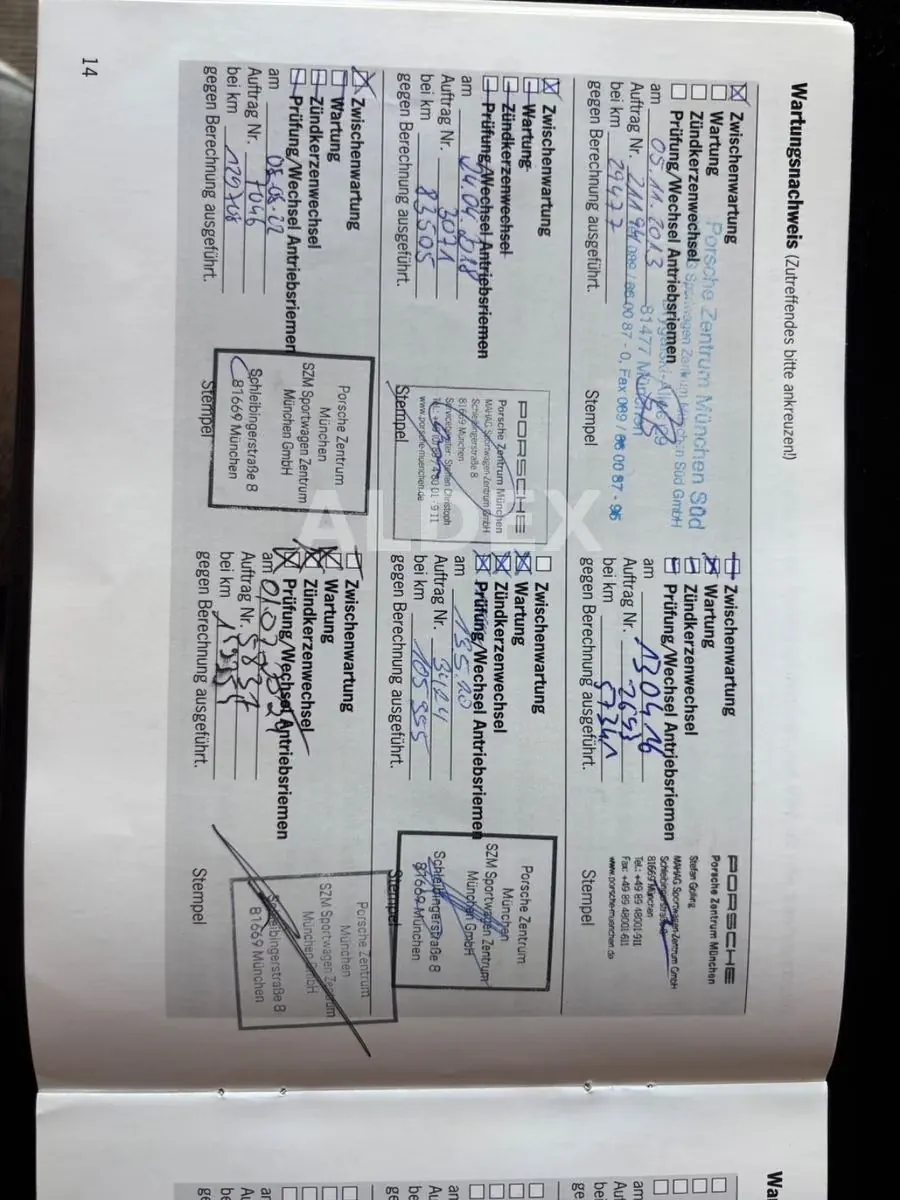 Wartungsnachweis (Zutreffendes bitte ankreuzen!)
Zwischenwartung
Wartung
Zündkerzenwechsel
Prüfung/Wechsel Antriebsriemen
am 05.11.2013
Auftrag Nr.
bei km 29477
gegen Berechnung ausgeführt.
Porsche Zentrum München Süd
81477 München
089 / 86 00 87 - 0, Fax 089 / 86 00 87 - 95
Stempel
Zwischenwartung
Wartung
Zündkerzenwechsel
Prüfung/Wechsel Antriebsriemen
am 13.04.16
Auftrag Nr. 2693
bei km 57341
gegen Berechnung ausgeführt.
PORSCHE
Porsche Zentrum München
MAHAG Sportwagen-Zentrum GmbH
81669 München
Tel.: +49 89 48001-911
Fax: +49 89 48001-611
www.porsche-muenchen.de
Stempel
Zwischenwartung
Wartung
Zündkerzenwechsel
Prüfung/Wechsel Antriebsriemen
am 24.04.2018
Auftrag Nr. 3071
bei km 83505
gegen Berechnung ausgeführt.
PORSCHE
Porsche Zentrum München
MAHAG Sportwagen-Zentrum GmbH
Schleibingerstraße 8
81669 München
www.porsche-muenchen.de
Stempel
Zwischenwartung
Wartung
Zündkerzenwechsel
Prüfung/Wechsel Antriebsriemen
am 13.5.20
Auftrag Nr. 3424
bei km 105 395
gegen Berechnung ausgeführt.
Porsche Zentrum
München
SZM Sportwagen Zentrum
München GmbH
Schleibingerstraße 8
81669 München
Stempel
Zwischenwartung
Wartung
Zündkerzenwechsel
Prüfung/Wechsel Antriebsriemen
am 05.05.22
Auftrag Nr. 7046
bei km 129708
gegen Berechnung ausgeführt.
Porsche Zentrum
München
SZM Sportwagen Zentrum
München GmbH
Schleibingerstraße 8
81669 München
Stempel
Zwischenwartung
Wartung
Zündkerzenwechsel
Prüfung/Wechsel Antriebsriemen
am
Auftrag Nr. 5837
bei km
gegen Berechnung ausgeführt.
Porsche Zentrum
München
SZM Sportwagen Zentrum
München GmbH
Schleibingerstraße 8
81669 München
Stempel
14
ALDEX